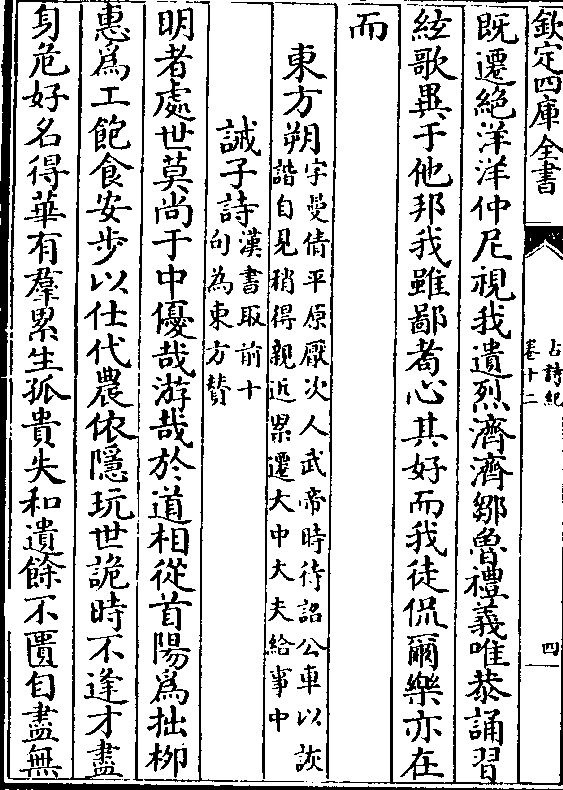 欽定四庫全書
古詩紀
卷十二
四
既遷絶洋洋仲尼視我遺烈濟濟鄒魯禮義唯恭誦習
絃歌異于他邦我雖鄙耉心其好而我徒侃爾樂亦在
而
東方朔
字曼倩平原厭次人武帝時待詔公車以詼
諧自見稍得親近累遷大中大夫給事中
誡子詩
漢書取前十
句為東方賛
明者處世莫尚于中優哉游哉於道相從首陽爲拙柳
惠爲工飽食安步以仕代農依隱玩世詭時不逢才盡
身危好名得華有羣累生孤貴失和遺餘不匱自盡無